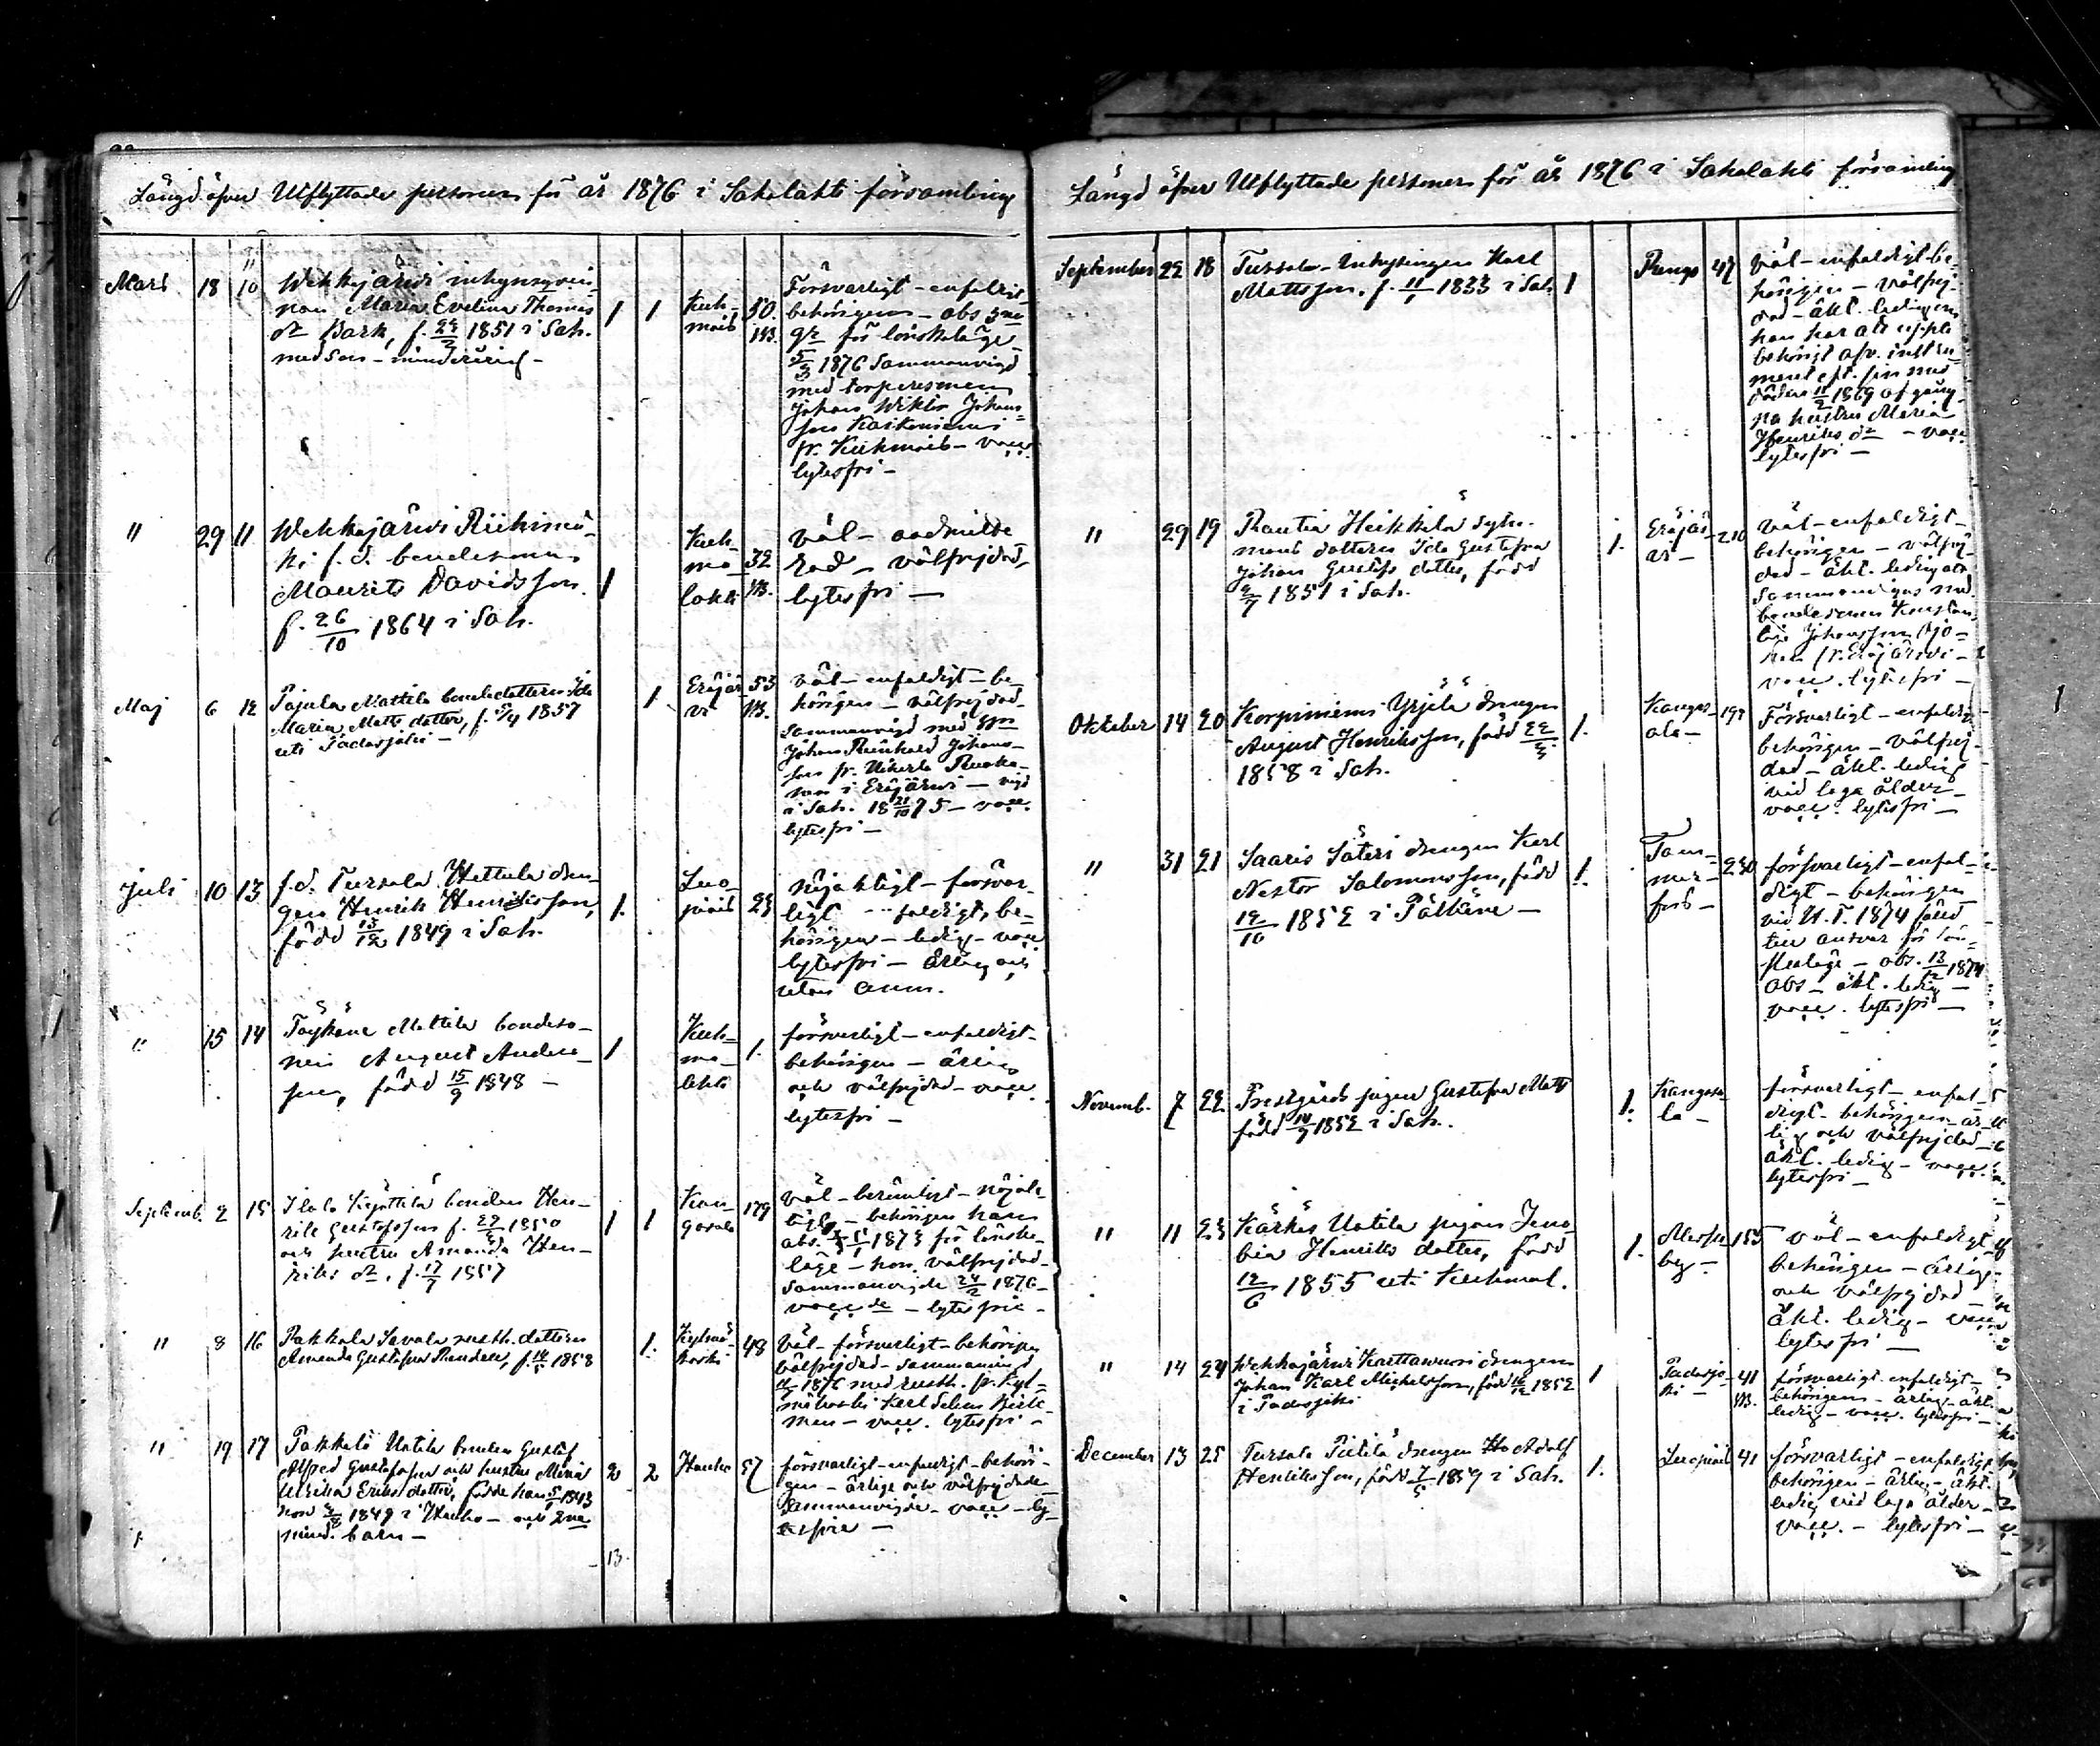 Längd öfver Utflyttade personer för år 1876 i Sahalahti församling
Mars 18 10 Wehkajärvi inhysingqvin-
nan Maria Evelina Thomas
dr Bark, f. 1851 i Sah. 1 1 Kuh- 50.
med son - minderårig - mois
Försvarligt - enfaldigt -
behörigen - abs
gr för lönskaläge
5/3 1876 Sammanvigd
med torparesonen
Johan Wiktor Johans-
son
fr. Kuhmois - vacc.
lytesfri -
" 29 11 Wehkajärvi Riihimä-
ki f. d. bondesonen
Maurits Davidsson 1
f. 26/10 1864 i Sah.
Kuh-
ma- 32
lahti
väl -
rad - välfrejdad,
lytesfri -
Maj 6 12 Pajula Mattila bondedottern Ida
Maria Matts dotter, f. 1857
uti Padasjoki -
1 Eräjär- 53
vi
väl - enfaldigt - be-
hörigen - välfrejdad -
Sammanvigd med
Johan Reinhold Johans-
son fr. Uherla
i Eräjärvi - vigd
i Sah. 18 21/10 75 - vacc.
lytesfri -
Juli 10 13 f.d. Tursala Uttula drän-
gen Henrik Henriksson, 1.
född 13/12 1849 i Sah.
Luo-
piois 23
nöjaktigt - försvar-
ligt faldigt, be-
hörigen - ledig - vacc
lytesfri - ärlig och
utan anm.
" 15 14 Töykänä Mattila bondeso-
nen August Anders- 1
son, född 15/9 1848 -
Kuh-
ma- 1.
lahti
försvarligt - enfaldigt -
behörigen - ärlig
och välfrejdad - vacc.
lytesfri -
Septemb. 2 15 bonden Hen-
rik Gustafsson f. 1850 1 1
och hustru Amanda Hen-
riks dr, f. 17/7 1857
Kan- 179
gasala
väl - berömligt - nöjak-
tigt - behörigen han
abs. 1873 för lönska-
läge - hon välfrejdad -
sammanvigde 1876 -
vacc de - lytesfrie -
" 8 16 Pakkala Savala rusth. dottern
Amanda Gustafva f. 1858
1. Kylmä- 48
koski
väl - försvarligt - behörigen
välfrejdad - sammanvigd
1876 med rusth. fr. Kyl-
mäkoski Karl
men - vacc. lytesfri -
" 19 17 Pakkala Uotila bonden Gustaf
Alfred Gustafsson och hustru Mina
Ulrika Eriks dotter, födde han 1843
hon 1849 i Hauho - och 2ne
mind. barn -
2 2 Hauho 57
försvarligt - enfaldigt - behöri-
gen - ärlige och välfrejdade
Sammanvigde - vacc - ly-
tesfrie -
13.
Längd öfver Utflyttade personer för år 1876 i Sahalahti församling
September 22 18 Tursala - Inhysingen Karl
Mattsson. f. 11/1 1833 i Sah. 1
47
väl - enfaldigt be-
hörigen - välfrej-
dad - äkt. ledig
han har att uppte
behörigt afv. instru-
ment eft. sin med
döden 1869 afgång-
na hustru Maria
Henriks dr - vacc
lytesfri -
" 29 19 Rautia Heikkilä
mans dottern Ida Gustafva
Johan Gustafs dotter, född
1851 i Sah.
1. Eräjär- 210
vi -
väl - enfaldigt -
behörigen - välfrej-
dad - äkt. ledig att
sammanvigas med
bondesonen Konstan-
tin Johansson
fr. Eräjärvi -
vacc. lytesfri -
Oktober 14 20 Korpiniemi Yrjölä drängen
August Henriksson, född 1. Kangas-
1858 i Sah. ala -
Försvarligt - enfaldigt
behörigen - välfrej-
dad - äkt. ledig
vid laga ålder -
vacc. lytesfri -
" 31 21 Saaris Säteri drängen Karl
Nestor Salomonsson, född 1.
12/10 1852 i Pälkäne -
Tam- 230
mer-
fors -
försvarligt - enfal-
digt - behörigen
vid H. T. 1874 fälld
till ansvar för lön-
skaläge - abs. 13/12 1874
äkt. ledig -
vacc. lytesfri -
Novemb. 7 22 Prestgårds pigan Gustafva Matts
född 1852 i Sah.
1. Kangasa-
la -
försvarligt - enfal-
digt - behörigen - är-
lig och välfrejdad -
äkt. ledig - vacc.
lytesfri -
" 11 23 Kärkäs Uotila pigan Jeno-
bia Henriks dotter, född
12/6 1855 uti Kuhmal.
1. Messu- 185
by -
väl - enfaldigt
behörigen - ärlig -
och välfrejdad -
äkt. ledig - vacc
lytesfri -
" 14 24 Wehkajärvi Karttavuori drängen
Johan Karl Michelsson, född 1852
i Padasjoki
1 Padasjo- 41
ki -
försvarligt - enfaldigt -
behörigen - ärlig - äkt.
ledig - vacc. lytesfri -
December 13 25 Tursala Pietilä drängen Adolf
Henriksson, född 1859 i Sah. 1.
Luopiois 41
försvarligt - enfaldigt
behörigen - ärlig - äkt.
ledig vid laga ålder -
vacc. - lytesfri -